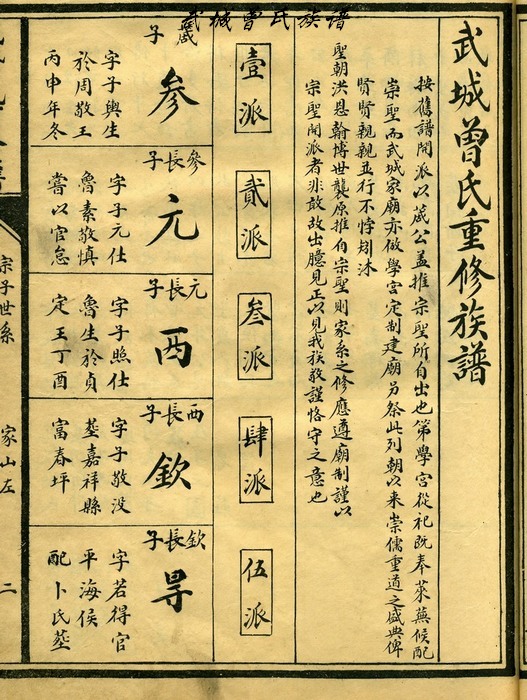 武城曾氏族譜
武城曾氏重修族譜
按舊譜開派以蒧公蓋推宗聖所自出也第學宮從祀既奉萊蕪候配
崇聖而武城家廟亦倣學宮定制建廟另祭此列朝以來崇儒重道之盛典俾
賢賢親親並行不悖矧沐
聖朝洪恩翰博世襲原推自宗聖則家系之修應遵廟制謹以
宗聖開派者非敢故出臆見正以見我族敬謹恪守之意也
壹派
貳派
叁派
肆派
伍派
蒧子
参
字子輿生
於周敬王
丙申年冬
參長子
元
字子元仕
魯素敬慎
嘗以官怠
元長子
西
字子照仕
魯生於貞
定王丁酉
西長子
欽
字子敬没
塟嘉祥縣
富春坪
欽長子
字若得官
平海侯
配卜氏塟
宗子世系
家山左
二